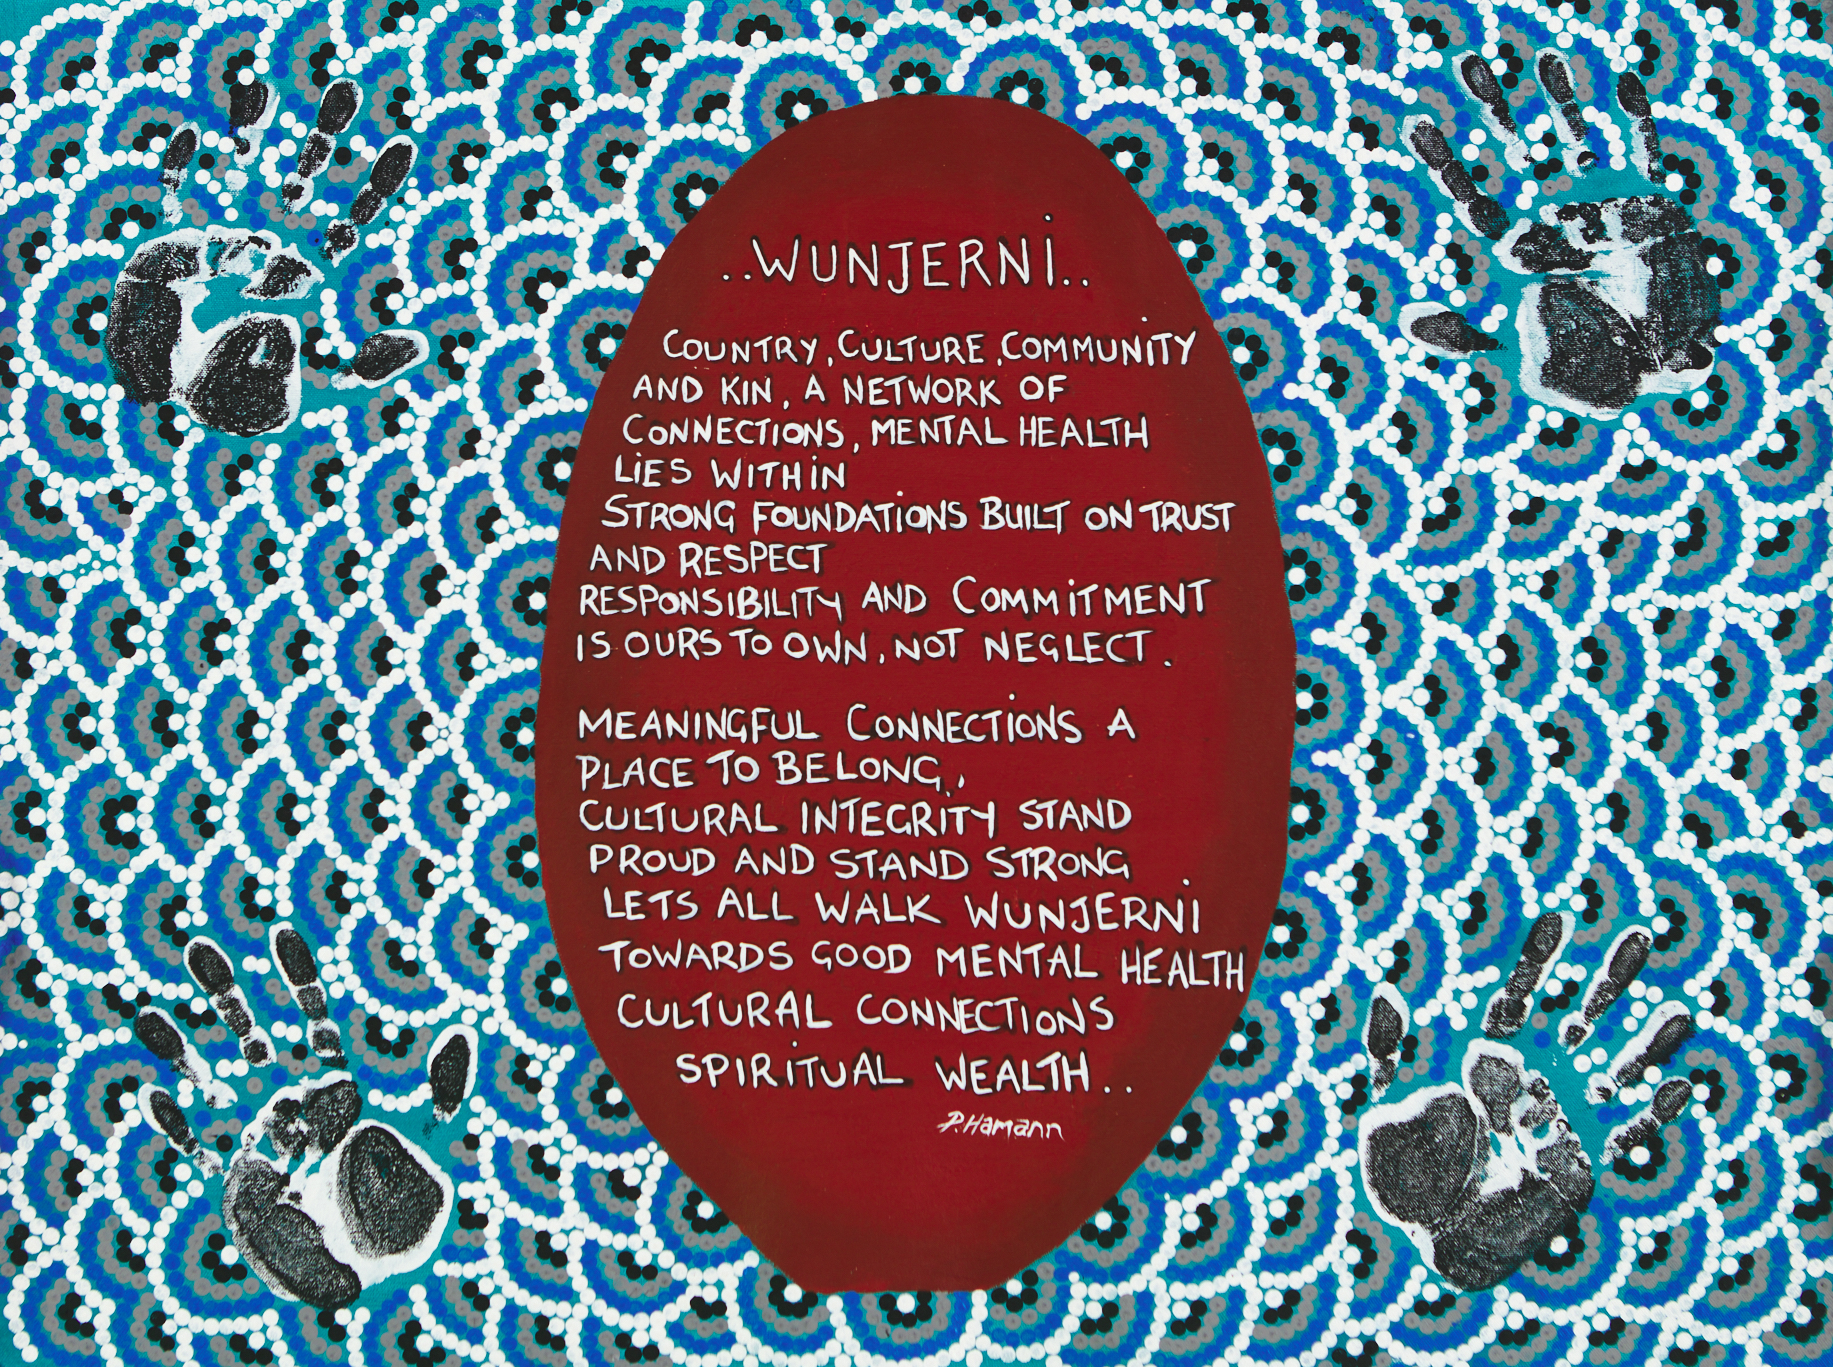 ..WUNJERNi..
COUNTRY, CULTURE, COMMUNiTY
AND KIN, A NETWORK OF
CONNECTIONS, MENTAL HEALTH
LiES WITHiN
STRONG FOUNDATiONS BUILT ON TRUST
AND RESPECT
RESPONSIBILITY AND COMMiTMENT
IS OURS TO OWN, NOT NEGLECT.
MEANINGFUL CONNECTiONS A
PLACE TO BELONG,
CULTURAL INTEGRITY STAND
PROUD AND STAND STRONG
LETS ALL WALK WUNJERNi
TOWARDS GOOD MENTAL HEALTH
CULTURAL CONNECTIONS
SPIRiTUAL WEALTH..
P.Hamann